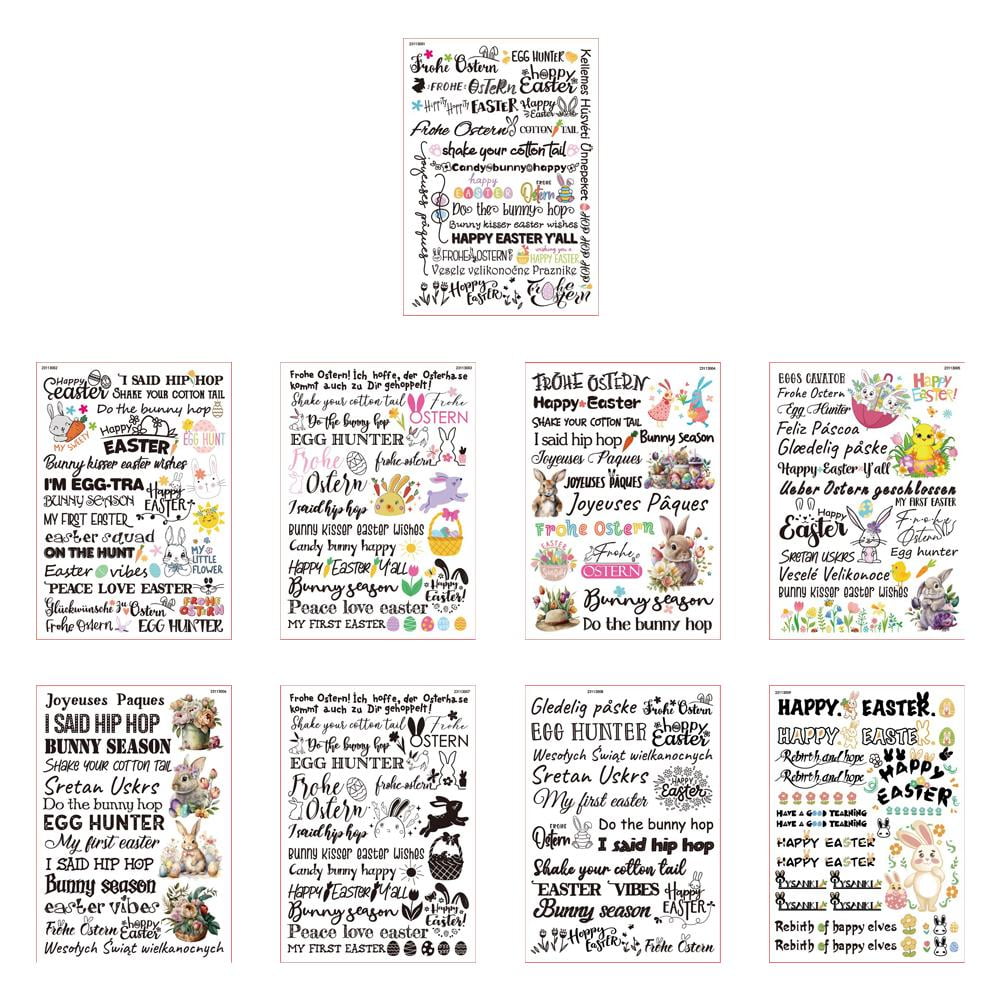 23113001
Frohe Ostern
EGG HUNTER
FROHE OSTERN
Hoppy Easter
Hippity Hoppity EASTER
Happy Easter
Frohe Ostern
COTTON TAIL
shake your cotton tail
Candy bunny happy
happy EASTER
FROHE Ostern
Do the bunny hop
Bunny kisser easter wishes
HAPPY EASTER Y'ALL
FROHE OSTERN!
wishing you a HAPPY EASTER
Vesele velikonočne Praznike
Hoppy EASTER
Frohe Ostern
joyeuses pâques
Kellemes Húsvéti Ünnepeket
HOP HOP HOP
23113002
Happy Easter
I SAID HIP HOP
SHAKE YOUR COTTON TAIL
Do the bunny hop
MY SWEETY
Happy EASTER
EGG HUNT
Bunny kisser easter wishes
I'M EGG-TRA
BUNNY SEASON
Happy EASTER
MY FIRST EASTER
easter squad
ON THE HUNT
MY LITTLE FLOWER
Easter vibes
PEACE LOVE EASTER
Glückwünsche zu Ostern
FROHE OSTERN
Frohe Ostern
EGG HUNTER
23113003
Frohe Ostern! Ich hoffe, der Osterhase
kommt auch zu Dir gehoppelt!
Shake your cotton tail
Frohe OSTERN
Do the bunny hop
EGG HUNTER
Frohe Ostern
frohe ostern
I said hip hop
Bunny kisser easter wishes
Candy bunny happy
HAPPY EASTER Y'ALL
Bunny season
Happy Easter!
Peace love easter
MY FIRST EASTER
23113004
FROHE OSTERN
Happy Easter
SHAKE YOUR COTTON TAIL
I said hip hop
Bunny season
Joyeuses Paques
JOYEUSES PÂQUES
Joyeuses Pâques
Frohe Ostern
EASTER
Frohe OSTERN
Bunny season
Do the bunny hop
23113005
EGGS CAVATOR
Happy EASTER!
Frohe Ostern
Egg Hunter
Feliz Páscoa
Glædelig påske
Happy Easter Y'all
Ueber Ostern geschlossen
MY FIRST EASTER
Happy Easter
Frohes Ostern
SRETAN USKRS
Egg hunter
Veselé Velikonoce
Bunny kisser easter wishes
23113006
Joyeuses Paques
I SAID HIP HOP
BUNNY SEASON
SHAKE YOUR COTTON TAIL
Sretan Uskrs
Do the bunny hop
EGG HUNTER
My first easter
I SAID HIP HOP
Bunny season
easter vibes
Frohe Ostern
Hoppy Easter
Wesołych Świąt wielkanocnych
23113007
Frohe Ostern! Ich hoffe, der Osterhase
kommt auch zu Dir gehoppelt!
Shake your cotton tail
Frohe OSTERN
Do the bunny hop
EGG HUNTER
Frohe Ostern
frohe ostern
I said hip hop
Bunny kisser easter wishes
Candy bunny happy
HAPPY EASTER Y'ALL
Bunny season
Happy Easter!
Peace love easter
MY FIRST EASTER
23113008
Gledelig påske
Frohe Ostern
EGG HUNTER
hoppy Easter
Wesołych Świąt wielkanocnych
Sretan Uskrs
HAPPY Easter
My first easter
FROHE Ostern
Do the bunny hop
I said hip hop
Shake your cotton tail
EASTER VIBES
Happy EASTER
Bunny season
Hoppy EASTER
Frohe Ostern
23113009
HAPPY. EASTER.
HAPPY EASTER.
Rebirth and hope
Rebirth and hope
HAPPY EASTER
HAVE A GOOD TEARNING
HAVE A GOOD TEARNING
HAPPY EASTER
HAPPY EASTER
PYSANKI PYSANKI
PYSANKI PYSANKI
Rebirth of happy elves
Rebirth of happy elves